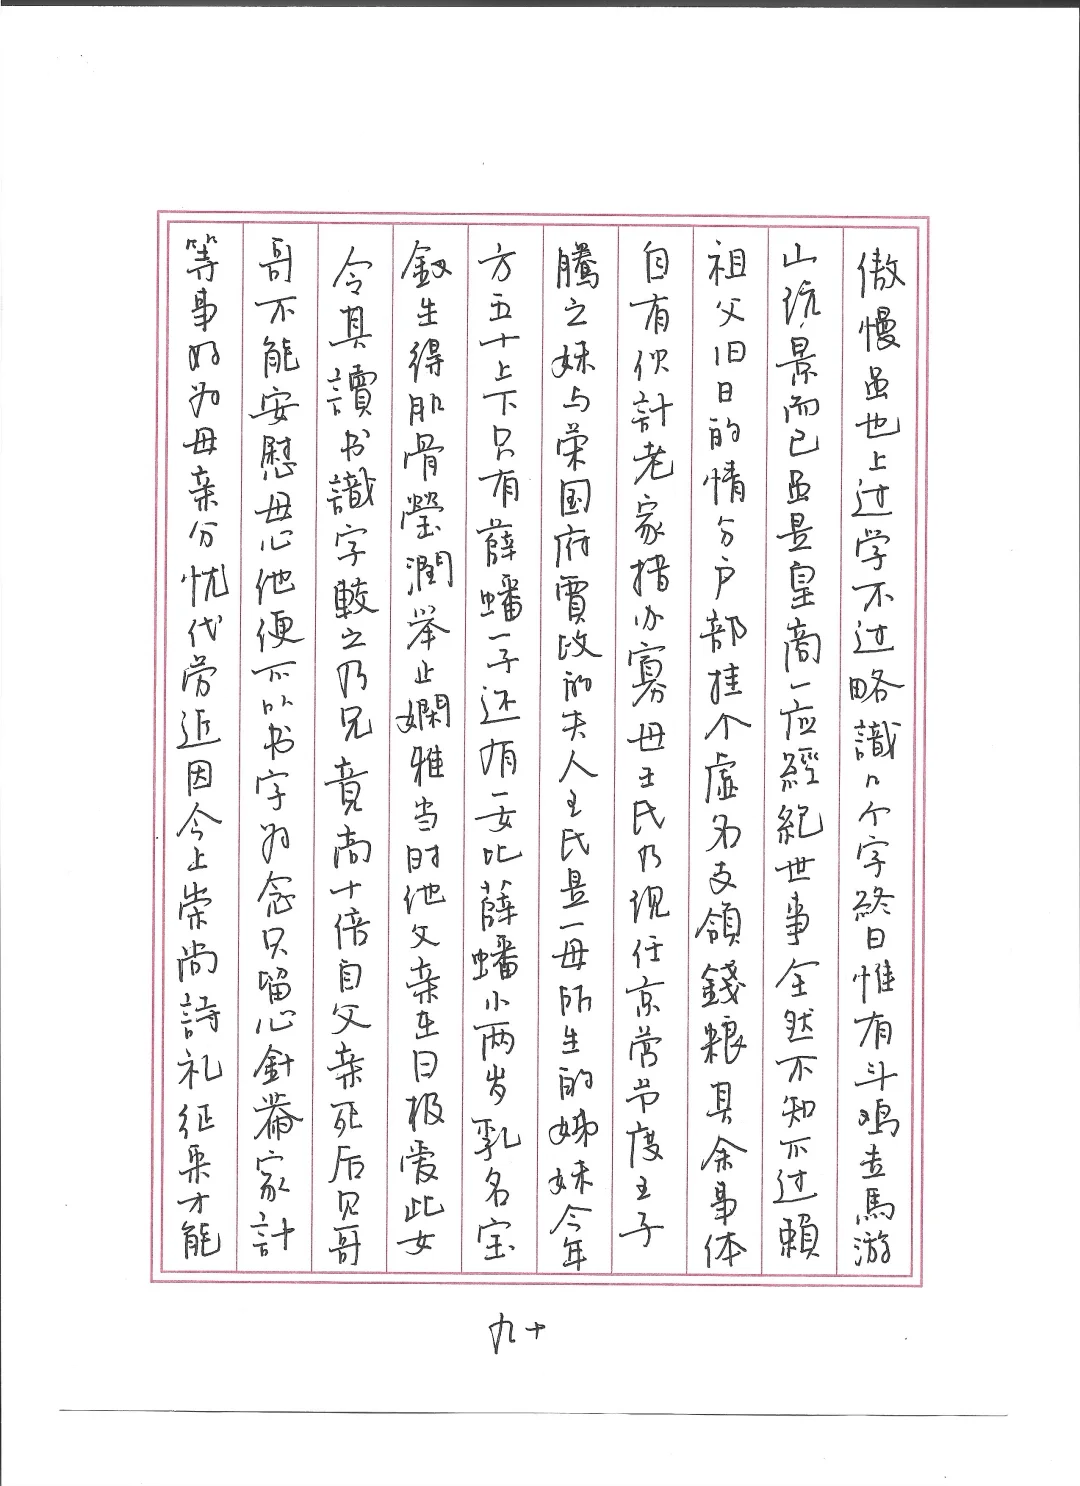 傲慢虽也上过学不过略識几个字終日惟有斗鸡走馬游
山玩景而已虽是皇商一应經紀世事全然不知不过賴
祖父旧日的情分户部挂个虚名支領錢粮其余事体
自有伙計老家措办寡母王氏乃现任京营节度王子
騰之妹与荣国府賈政的夫人王氏是一母所生的姊妹今年
方五十上下只有薛蟠一子还有一女比薛蟠小两岁乳名宝
釵生得肌骨瑩潤举止嫻雅当时他父亲在日极爱此女
令其讀书識字較之乃兄竟高十倍自父亲死后见哥
哥不能安慰母心他便不以书字为念只留心針黹家計
等事好为母亲分忧代劳近因今上崇尚詩礼征采才能
九十